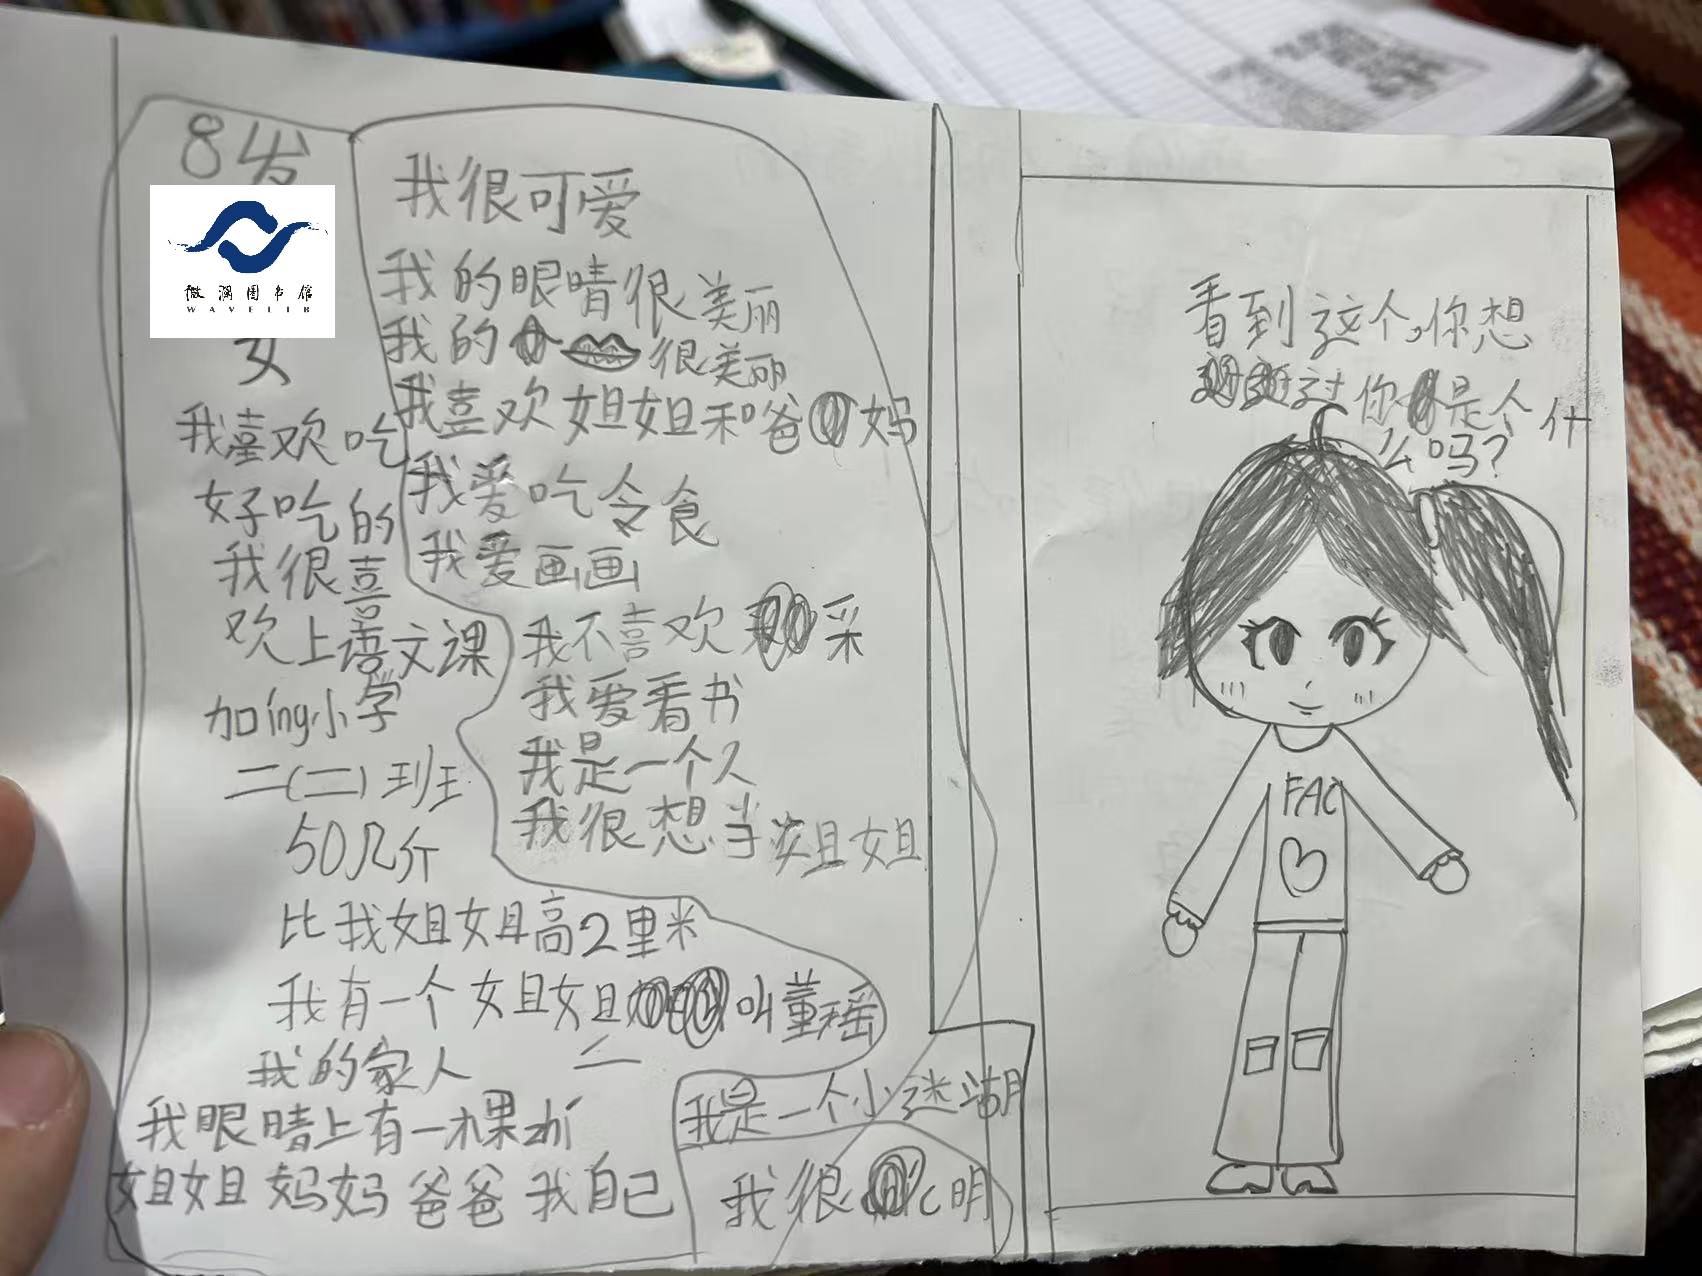 8岁
微澜图书馆
WAVELIB
女
我喜欢吃
好吃的
我很喜
欢上语文课
加íng小学
二(二)班
50几斤
比我姐姐高2厘米
我有一个姐姐叫董瑶
我的家人 二
我眼睛上有一木果zhì
姐姐 妈妈 爸爸 我自己
我很可爱
我的眼晴很美丽
我的很美丽
我喜欢姐姐和爸妈
我爱吃令食
我爱画画
我不喜欢采
我爱看书
我是一个人
我很想当姐姐
我是一个小迷湖
我很明
看到这个,你想
过你是个什
么吗?
FAC